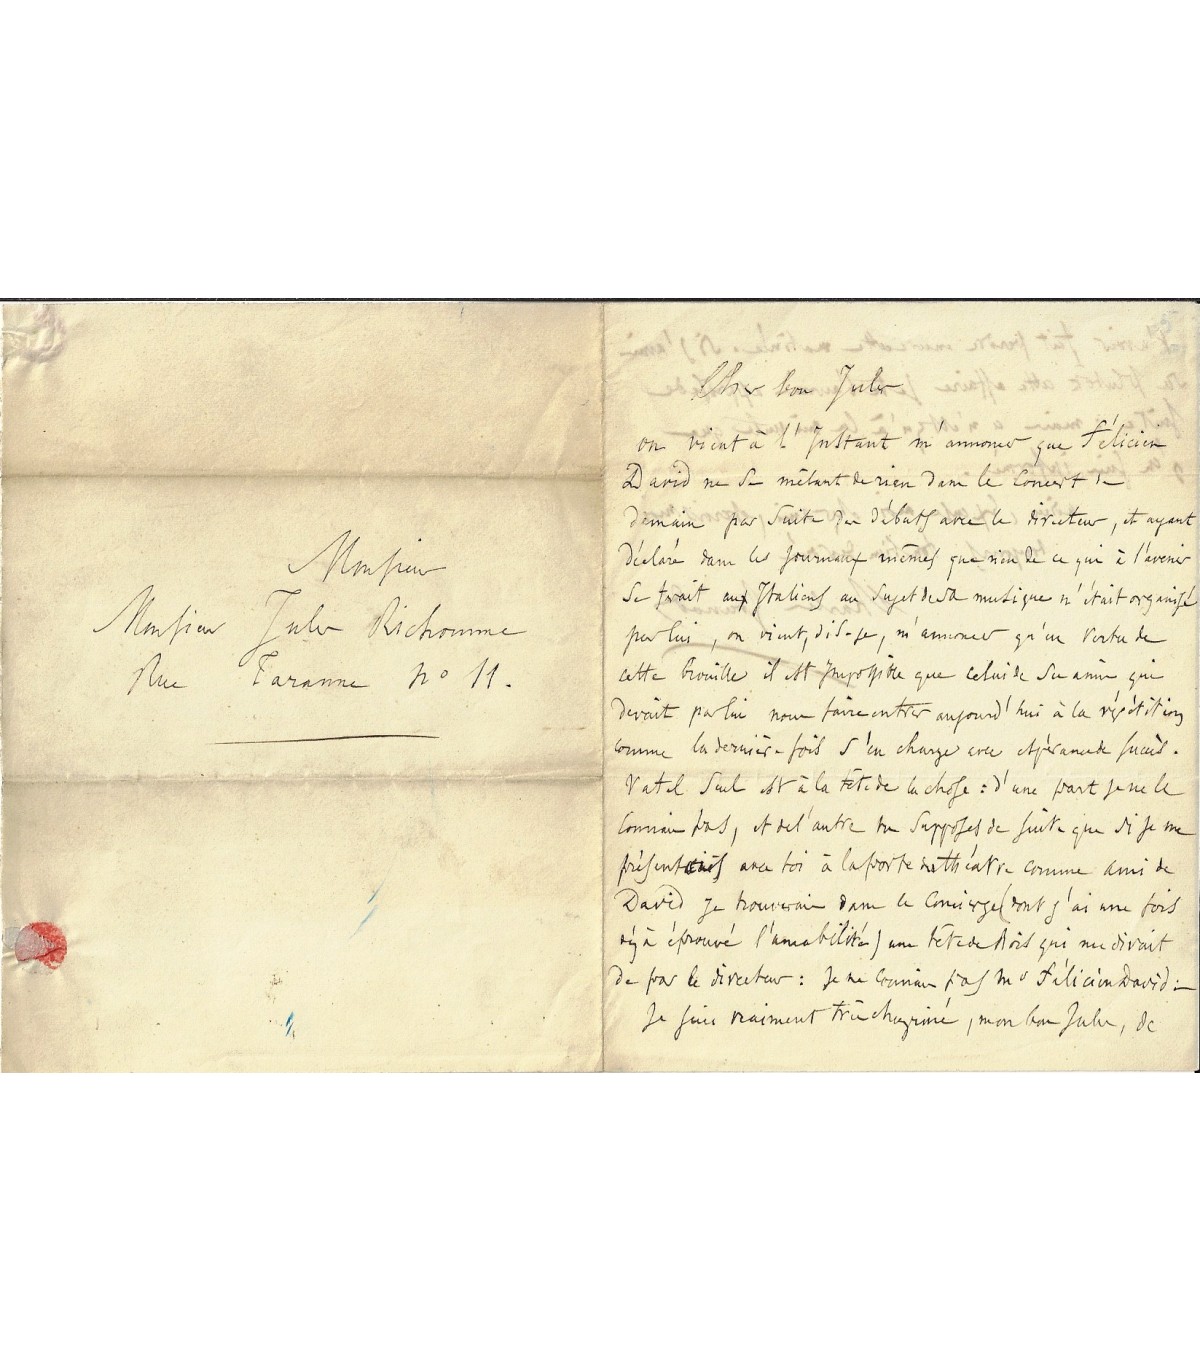 Monsieur
Monsieur Jules Richomme
Rue Taranne no 11.
Cher bon Jules
on vient à l'Instant m'annoncer que Félicien
David ne se mêlant de rien dans le Concert de
demain par suite de débats avec le directeur, et ayant
déclaré dans les journaux mêmes que rien de ce qui à l'avenir
se ferait aux Italiens au sujet de sa musique n'était organisé
par lui, on vient, dis-je, m'annoncer qu'en vertu de
cette brouille il est impossible que celui de ses amis qui
devait par lui nous faire entrer aujourd'hui à la répétition
comme la dernière fois s'en charge avec espérance de succès.
Vatel seul est à la tête de la chose : d'une part je ne le
connais pas, et de l'autre tu supposes de suite que si je me
présentais avec toi à la porte du théâtre comme ami de
David je trouverais dans le Concierge (dont j'ai une fois
déjà éprouvé l'amabilité) une tête de Bois qui me dirait
de par le directeur : je ne connais pas Mr Félicien David :
Je suis vraiment très chagriné, mon bon Jules, de